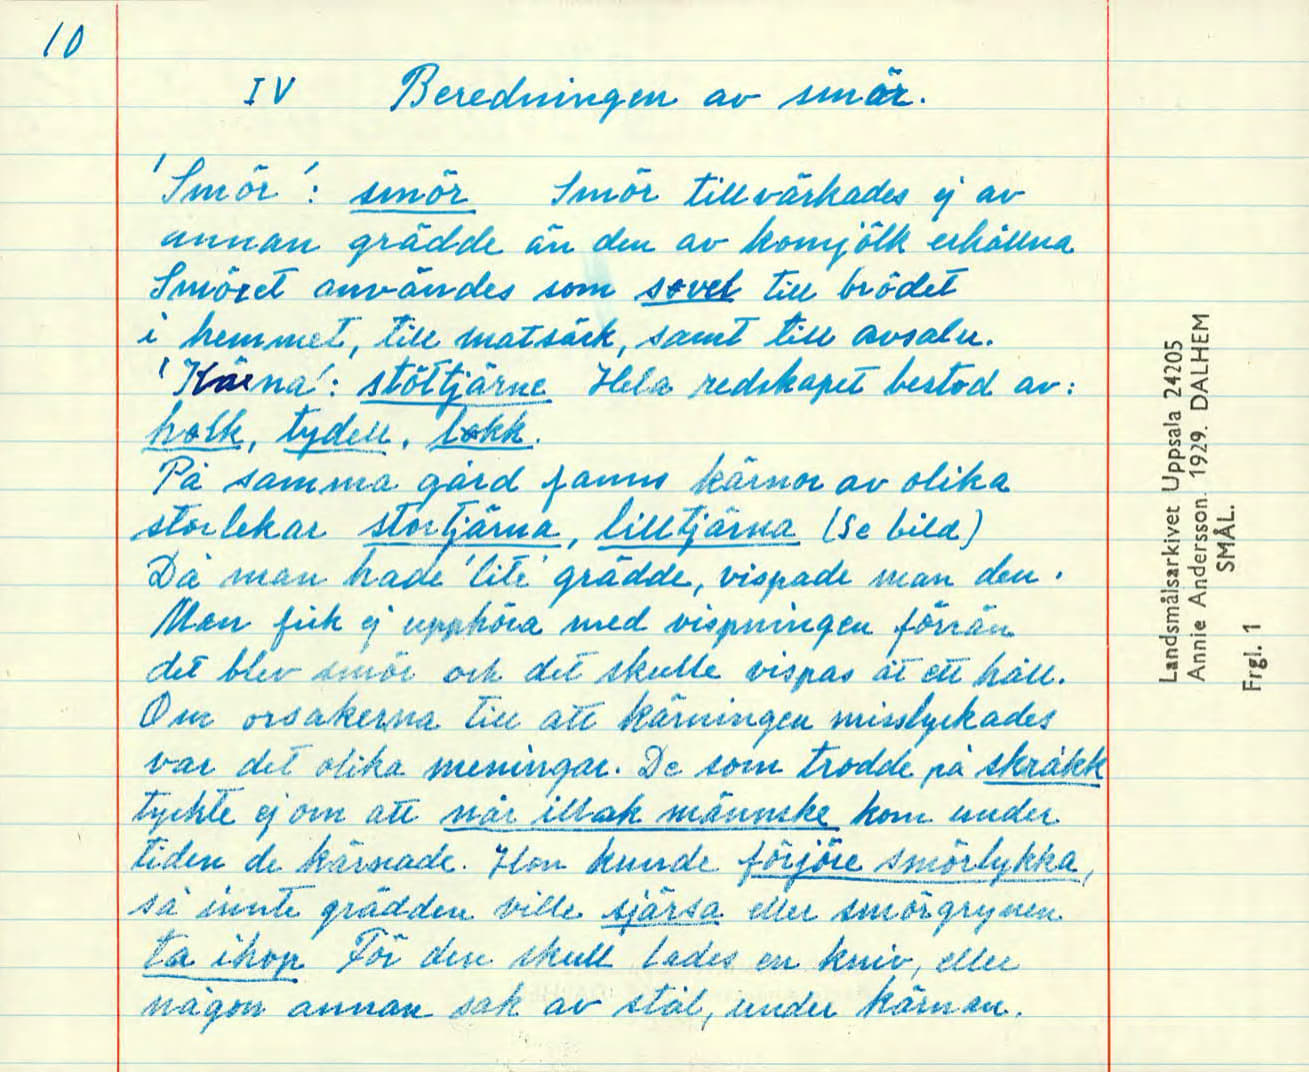 10
IV Beredningen av smör.
'Smör': smör Smör tillvärkades ej av
annan grädde än den av komjölk erhållna
Smöret användes som sovel till brödet
i hemmet, till matsäck, samt till avsalu.
'Kärna': stöttjärne Hela redskapet bestod av:
holk, tydell, lokk.
På samma gård fanns kärnor av olika
storlekar stortjärna, lilltjärna (Se bild)
Då man hade 'lite' grädde, vispade man den.
Man fick ej upphöra med vispningen förrän
det blev smör och det skulle vispas åt ett håll.
Om orsakerna till att kärningen misslyckades
var det olika meningar. De som trodde på skråkk
tyckte ej om att når illak männske kom under
tiden de kärnade. Hon kunde förjöre smörlykka,
så innte grädden ville sjärsa eller smörgrynen
ta ihop För den skull lades en kniv, eller
någon annan sak av stål, under kärnan.
Landsmålsarkivet Uppsala 24205
Annie Andersson. 1929. DALHEM
SMÅL.
Frgl. 1